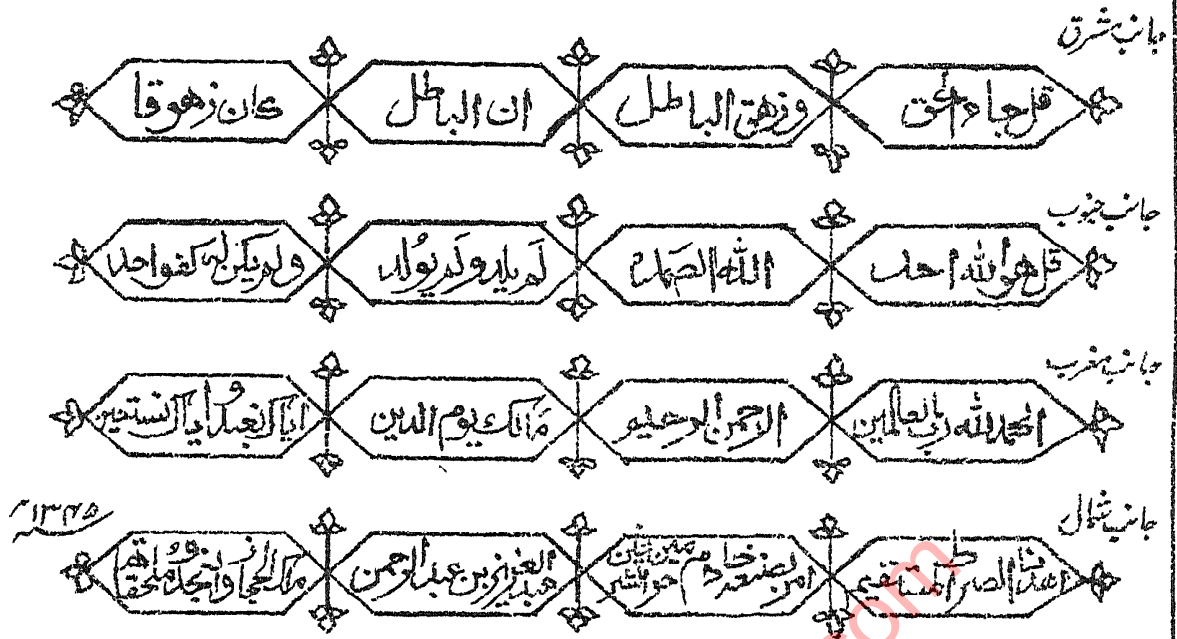 جانب مشرق
قل جاء الحق وزهق الباطل ان الباطل كان زهوقا
جانب جنوب
قل هو الله احد الله الصمد لم يلد ولم يولد ولم يكن له كفوا احد
جانب مغرب
الحمد لله رب العالمين الرحمن الرحيم مالك يوم الدين اياك نعبد و اياك نستعين
جانب شمال
اهدنا الصراط المستقيم امر بصنعه خادم حرمين شريفين عبد العزيز بن عبد الرحمن ملك الحجاز و نجد و ملحقاتها ۱۳۴۵